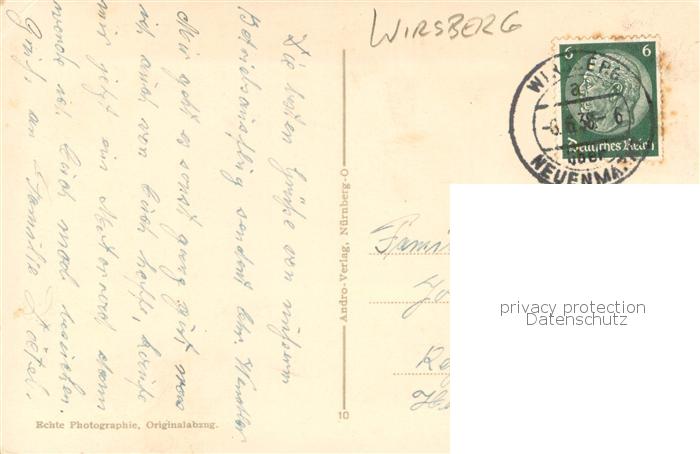 WIRSBERG
6 6
Deutsches Reich
NEUENMA
Die besten Grüße von unserm
Betriebsausflug sendet
Mir geht es sonst ganz gut, was
ich auch von Euch hoffe,
mir jetzt ein Motorrad dann
werde ich Euch mal besuchen.
Gruß an Familie
Andro-Verlag, Nürnberg-O
10
Echte Photographie, Originalabzug.
Fami
privacy protection
Datenschutz